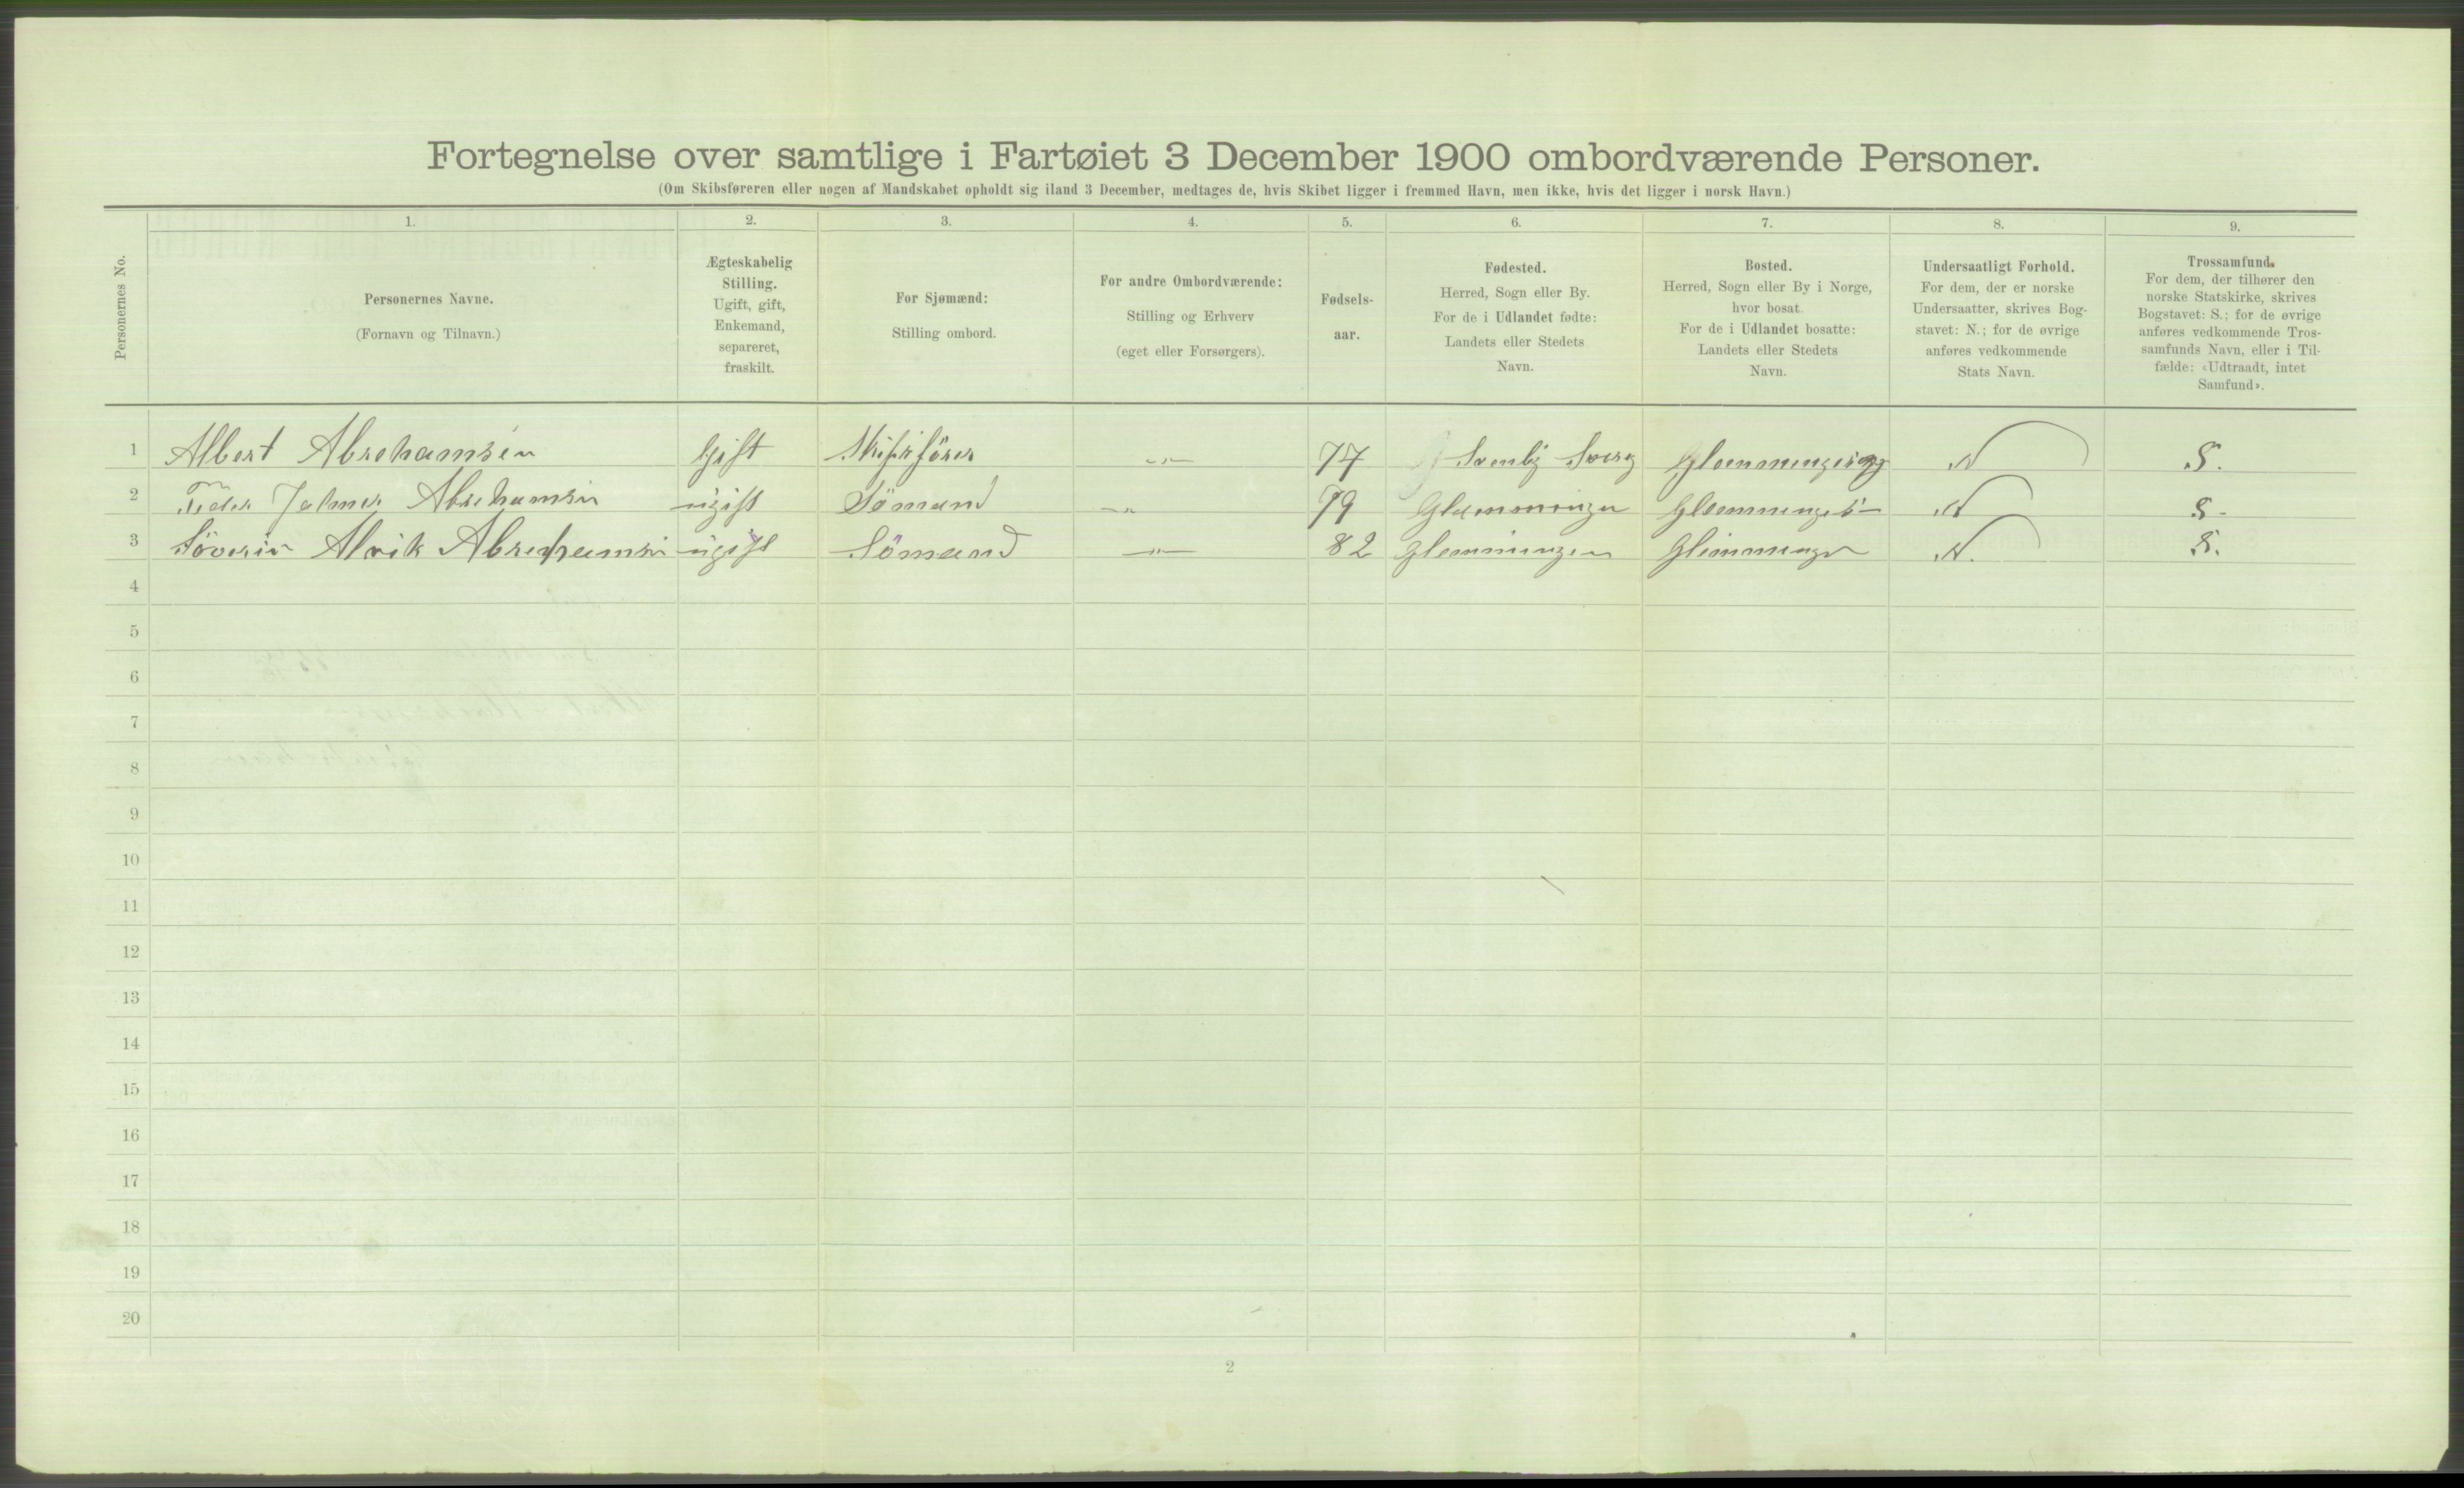 Fortegnelse over samtlige i Fartøiet 3 December 1900 ombordværende Personer.
(Om Skibsføreren eller nogen af Mandskabet opholdt sig iland 3 December, medtages de, hvis Skibet ligger i fremmed Havn, men ikke, hvis det ligger i norsk Havn.)
Personernes No.
1. 2. 3. 4. 5. 6. 7. 8. 9.
Personernes Navne.
(Fornavn og Tilnavn.)
Ægteskabelig
Stilling.
Ugift, gift,
Enkemand,
separeret,
fraskilt.
For Sjømænd:
Stilling ombord.
For andre Ombordværende:
Stilling og Erhverv
(eget eller Forsørgers).
Fødsels-
aar.
Fødested.
Herred, Sogn eller By.
For de i Udlandet fødte:
Landets eller Stedets
Navn.
Bosted.
Herred, Sogn eller By i Norge,
hvor bosat.
For de i Udlandet bosatte:
Landets eller Stedets
Navn.
Undersaatligt Forhold.
For dem, der er norske
Undersaatter, skrives Bog-
stavet: N.; for de øvrige
anføres vedkommende
Stats Navn.
Trossamfund.
For dem, der tilhører den
norske Statskirke, skrives
Bogstavet: S.; for de øvrige
anføres vedkommende Tros-
samfunds Navn, eller i Til-
fælde: «Udtraadt, intet
Samfund».
1 Albert Abrehamsen Gift Skipsförer -"- 77 N S.
2 Abrehamsen ugift Sömand -"- 79 Glemmingen N S.
3 Söverin Alvik Abrehamsen ugift Sömand -"- 82 Glemmingen Glemmingen N. S.
4
5
6
7
8
9
10
11
12
13
14
15
16
17
18
19
20
2